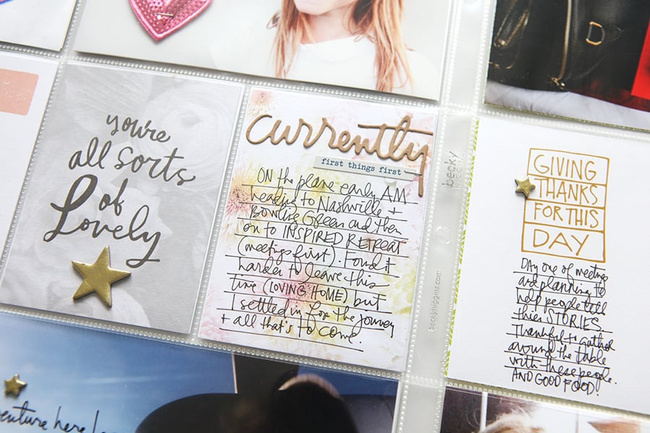 you're
all sorts
of
Lovely
currently
first things first
ON the plane early AM
heading to Nashville +
Bowling Green and then
on to INSPIRED RETREAT
(meetings first). Found it
harder to leave this
time (LOVING HOME) but
I settled in for the journey
+ all that's to come.
becky
GIVING
THANKS
FOR THIS
DAY
Day one of meetings
and planning to
help people tell
their STORIES.
Thankful to gather
around the table
with these people.
AND GOOD FOOD!
venture here